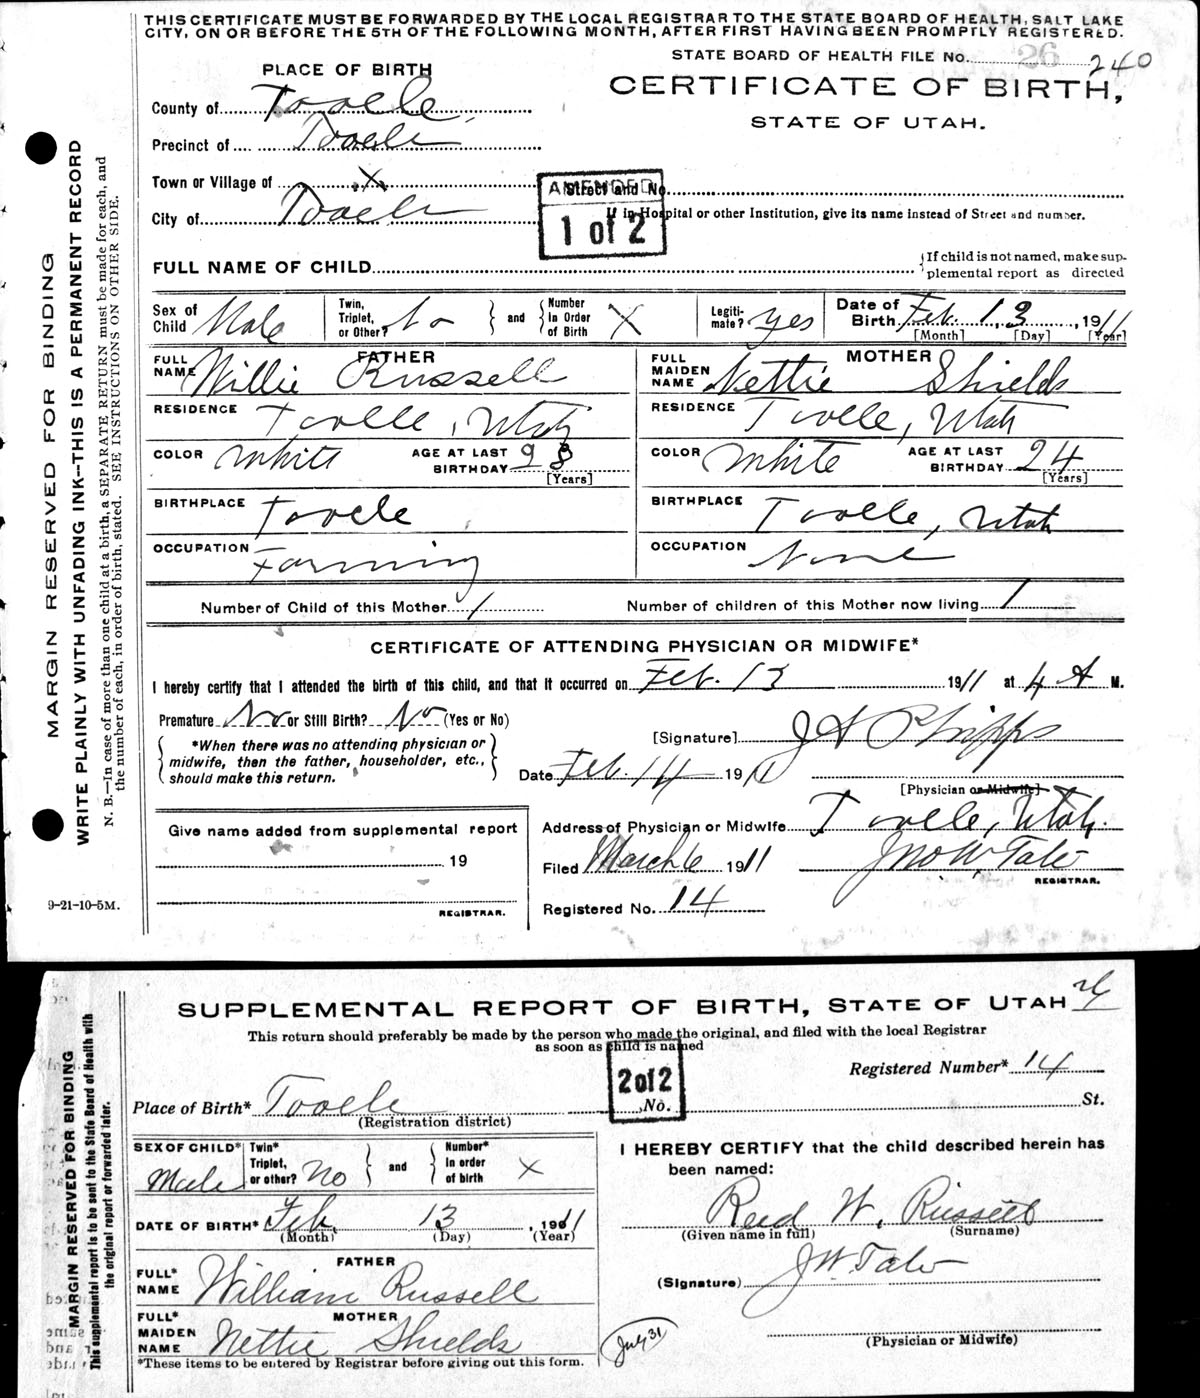 THIS CERTIFICATE MUST BE FORWARDED BY THE LOCAL REGISTRAR TO THE STATE BOARD OF HEALTH, SALT LAKE
CITY, ON OR BEFORE THE 5TH OF THE FOLLOWING MONTH, AFTER FIRST HAVING BEEN PROMPTLY REGISTERED.
STATE BOARD OF HEALTH FILE No. 26 240
PLACE OF BIRTH
CERTIFICATE OF BIRTH,
STATE OF UTAH.
County of Tooele,
Precinct of Tooele
Town or Village of X
City of Tooele
AMENDED
1 of 2
Street and No.
If in Hospital or other Institution, give its name instead of Street and number.
FULL NAME OF CHILD
If child is not named, make sup-
plemental report as directed
Sex of Child Male
Twin, Triplet, or Other? No
and
Number In Order of Birth X
Legiti-mate? yes
Date of Birth Feb. 13, 1911
[Month] [Day] [Year]
FATHER
FULL NAME Willie Russell
MOTHER
FULL MAIDEN NAME Nettie Shields
RESIDENCE Tooele, Utah
RESIDENCE Tooele, Utah
COLOR White AGE AT LAST BIRTHDAY 28 [Years]
COLOR White AGE AT LAST BIRTHDAY 24 [Years]
BIRTHPLACE Tooele
BIRTHPLACE Tooele, Utah
OCCUPATION Farming
OCCUPATION None
Number of Child of this Mother 1
Number of children of this Mother now living 1
CERTIFICATE OF ATTENDING PHYSICIAN OR MIDWIFE*
I hereby certify that I attended the birth of this child, and that it occurred on Feb. 13 1911 at 4 A M.
Premature No or Still Birth? No (Yes or No)
*When there was no attending physician or
midwife, then the father, householder, etc.,
should make this return.
[Signature] J A Phipps
Date Feb. 14 1911
[Physician or Midwife]
Give name added from supplemental report
19
REGISTRAR.
Address of Physician or Midwife Tooele, Utah.
Filed March 6 1911 Jno. W. Tate
REGISTRAR.
Registered No. 14
9-21-10-5M.
MARGIN RESERVED FOR BINDING
WRITE PLAINLY WITH UNFADING INK—THIS IS A PERMANENT RECORD
N. B.—In case of more than one child at a birth, a SEPARATE RETURN must be made for each, and
the number of each, in order of birth, stated. SEE INSTRUCTIONS ON OTHER SIDE.
SUPPLEMENTAL REPORT OF BIRTH, STATE OF UTAH
This return should preferably be made by the person who made the original, and filed with the local Registrar
as soon as child is named
2 of 2
Registered Number* 14
Place of Birth* Tooele No. St.
(Registration district)
SEX OF CHILD* Male
Twin* Triplet, or other? No
and
Number* In order of birth X
DATE OF BIRTH* Feb. 13, 1911
(Month) (Day) (Year)
FATHER
FULL* NAME William Russell
MOTHER
FULL* MAIDEN NAME Nettie Shields
*These items to be entered by Registrar before giving out this form.
I HEREBY CERTIFY that the child described herein has
been named:
Reed W. Russell
(Given name in full) (Surname)
(Signature) J W. Tate
(Physician or Midwife)
July 31
MARGIN RESERVED FOR BINDING
This supplemental report is to be sent to the State Board of Health with
the original report or forwarded later.